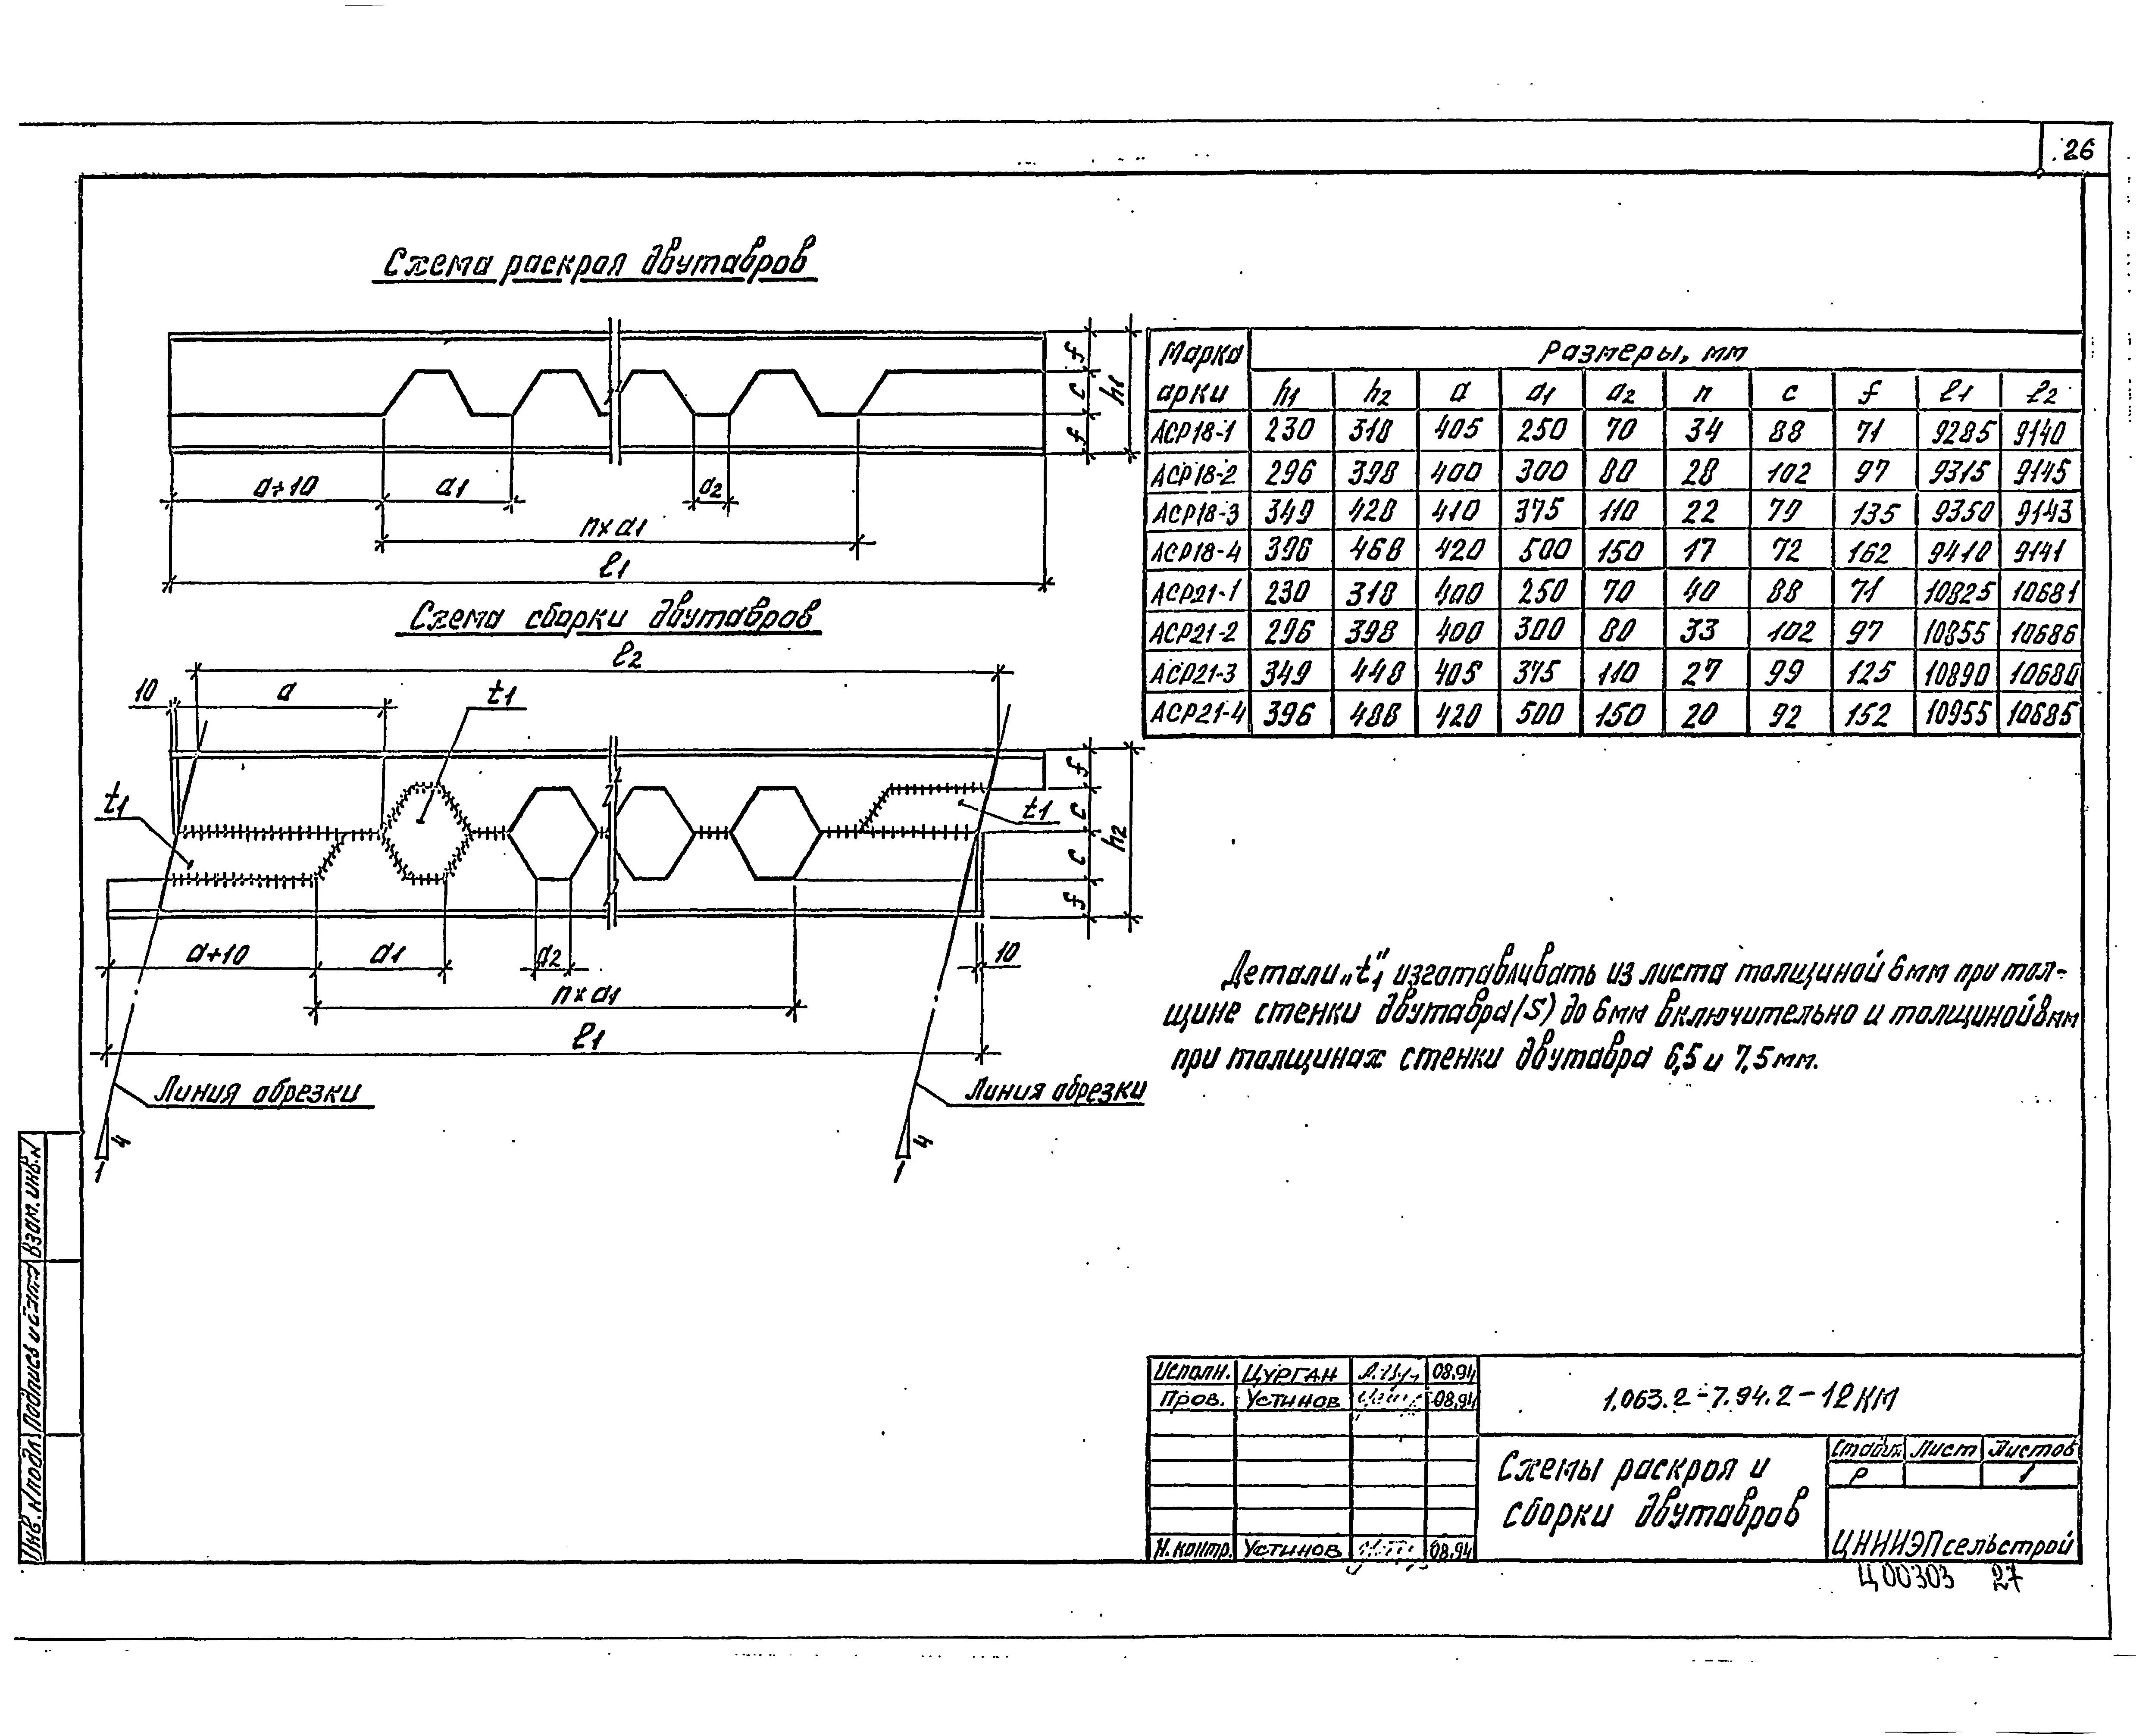 26
Схема раскроя двутавров
f
c
f
h1
a+10
a1
a2
n×a1
ℓ1
Схема сборки двутавров
ℓ2
10
a
t1
t1
t1
f
c
c
f
h2
a+10
a1
a2
10
n×a1
ℓ1
Линия обрезки
Линия обрезки
4
1
4
1
Марка арки
Размеры, мм
h1 h2 a a1 a2 n c f ℓ1 ℓ2
АСР18-1 230 318 405 250 70 34 88 71 9285 9140
АСР18-2 296 398 400 300 80 28 102 97 9315 9145
АСР18-3 349 428 410 375 110 22 79 135 9350 9143
АСР18-4 396 468 420 500 150 17 72 162 9410 9141
АСР21-1 230 318 400 250 70 40 88 71 10825 10681
АСР21-2 296 398 400 300 80 33 102 97 10855 10686
АСР21-3 349 448 405 375 110 27 99 125 10890 10680
АСР21-4 396 488 420 500 150 20 92 152 10955 10685
Детали „t1" изготавливать из листа толщиной 6мм при тол-
щине стенки двутавра (S) до 6мм включительно и толщиной 8мм
при толщинах стенки двутавра 6,5 и 7,5мм.
Взам. инв. №
Подпись и дата
Инв. № подл.
Исполн. Цурган 08.94
Пров. Устинов 08.94
Н. контр. Устинов 08.94
1.063.2-7.94.2-12КМ
Схемы раскроя и
сборки двутавров
Стадия Лист Листов
Р 1
ЦНИИЭПсельстрой
Ц00303 27